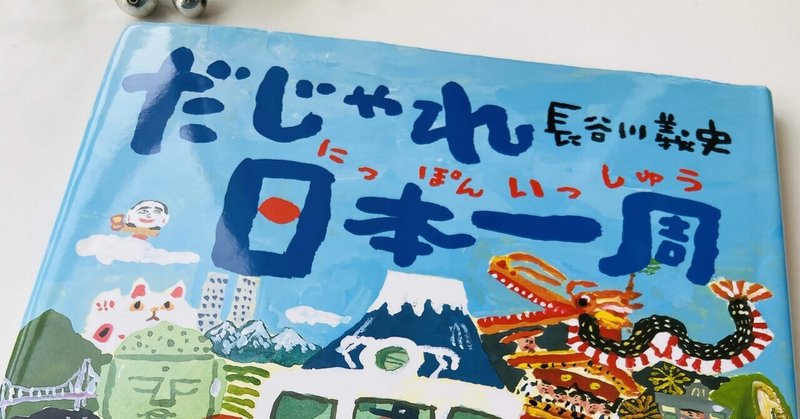 だじゃれ
長谷川義史
にっぽんいっしゅう
日本一周